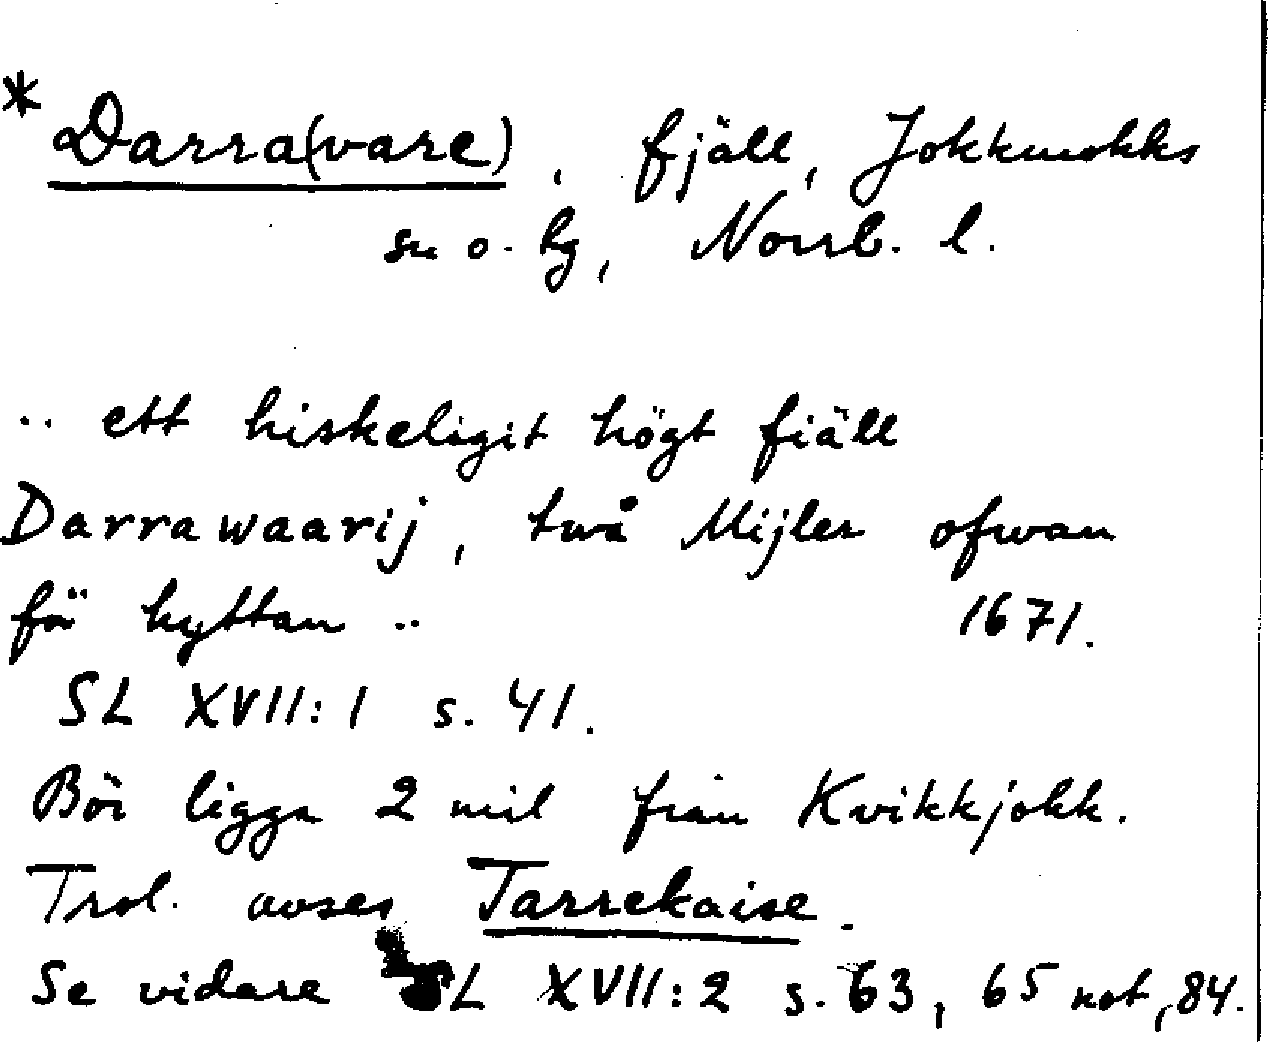 * Darra(vare), fjäll, Jokkmokks
sn o. hg, Norrb. l.
.. ett hiskeligit högt fiäll
Darrawaarij, twå Mijler ofwan
för hyttan .. 1671.
SL XVII:1 s. 41.
Bör ligga 2 mil från Kvikkjokk.
Trol. avses Tarrekaise.
Se vidare SL XVII:2 s. 63, 65 not, 84.